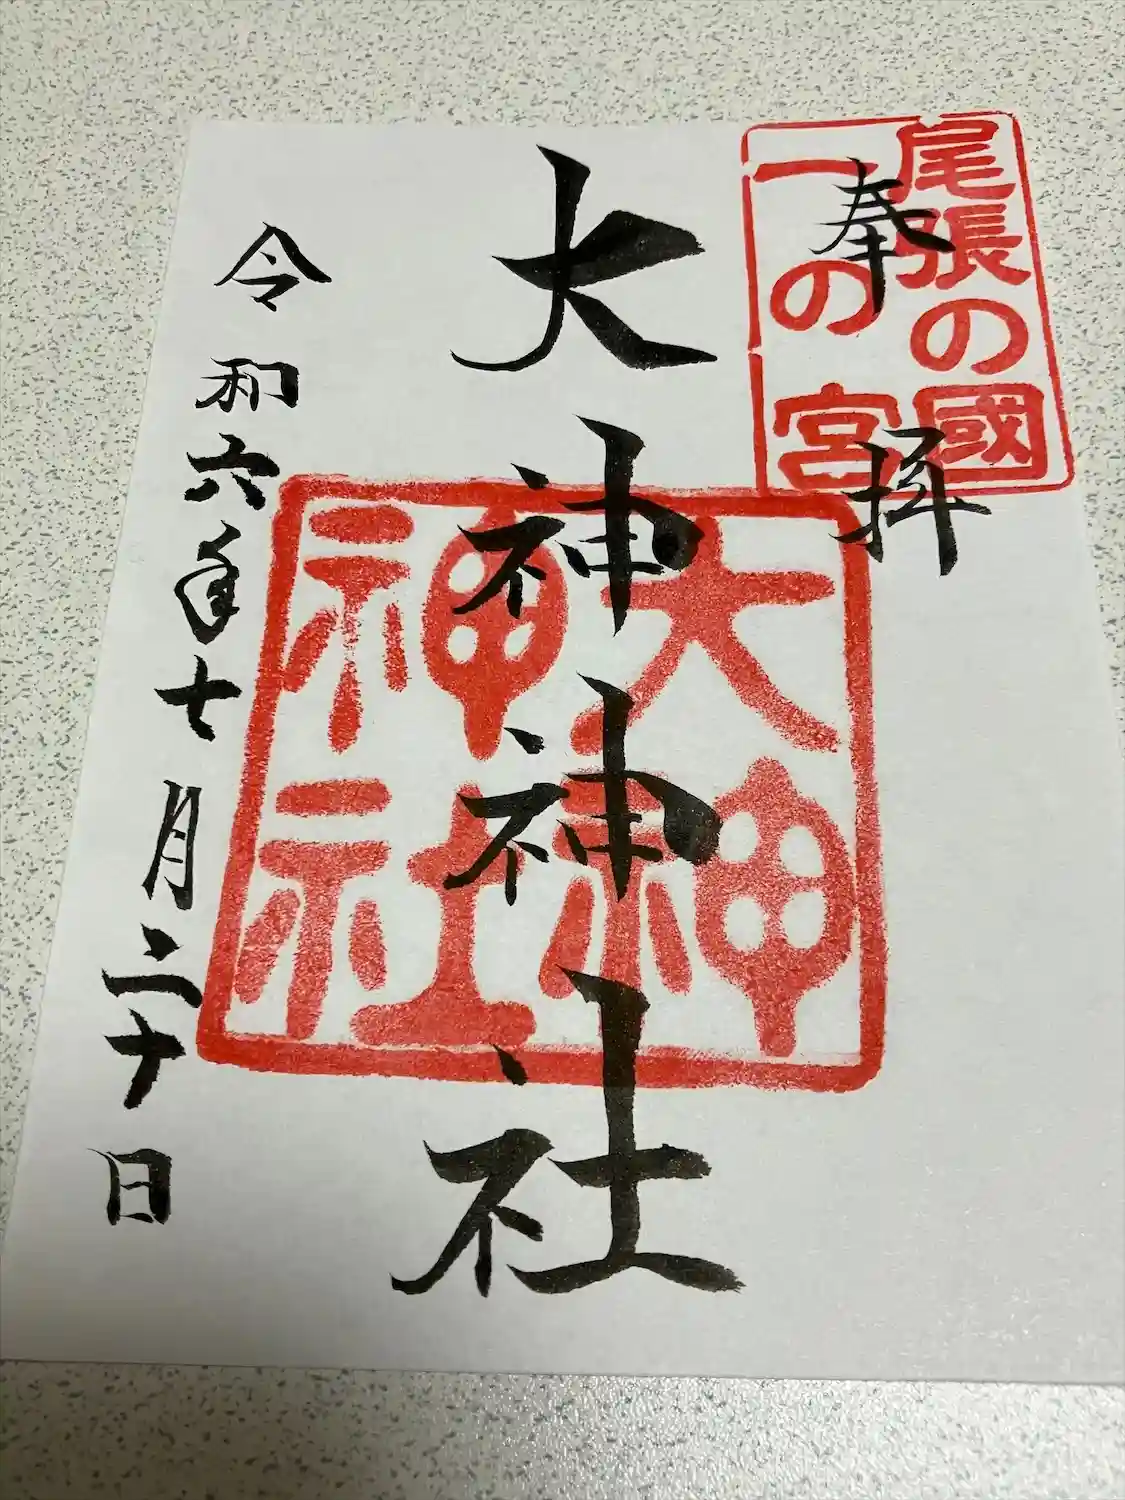 尾張の國
一の宮
奉拝
大神神社
大神
神社
令和六年七月二十日